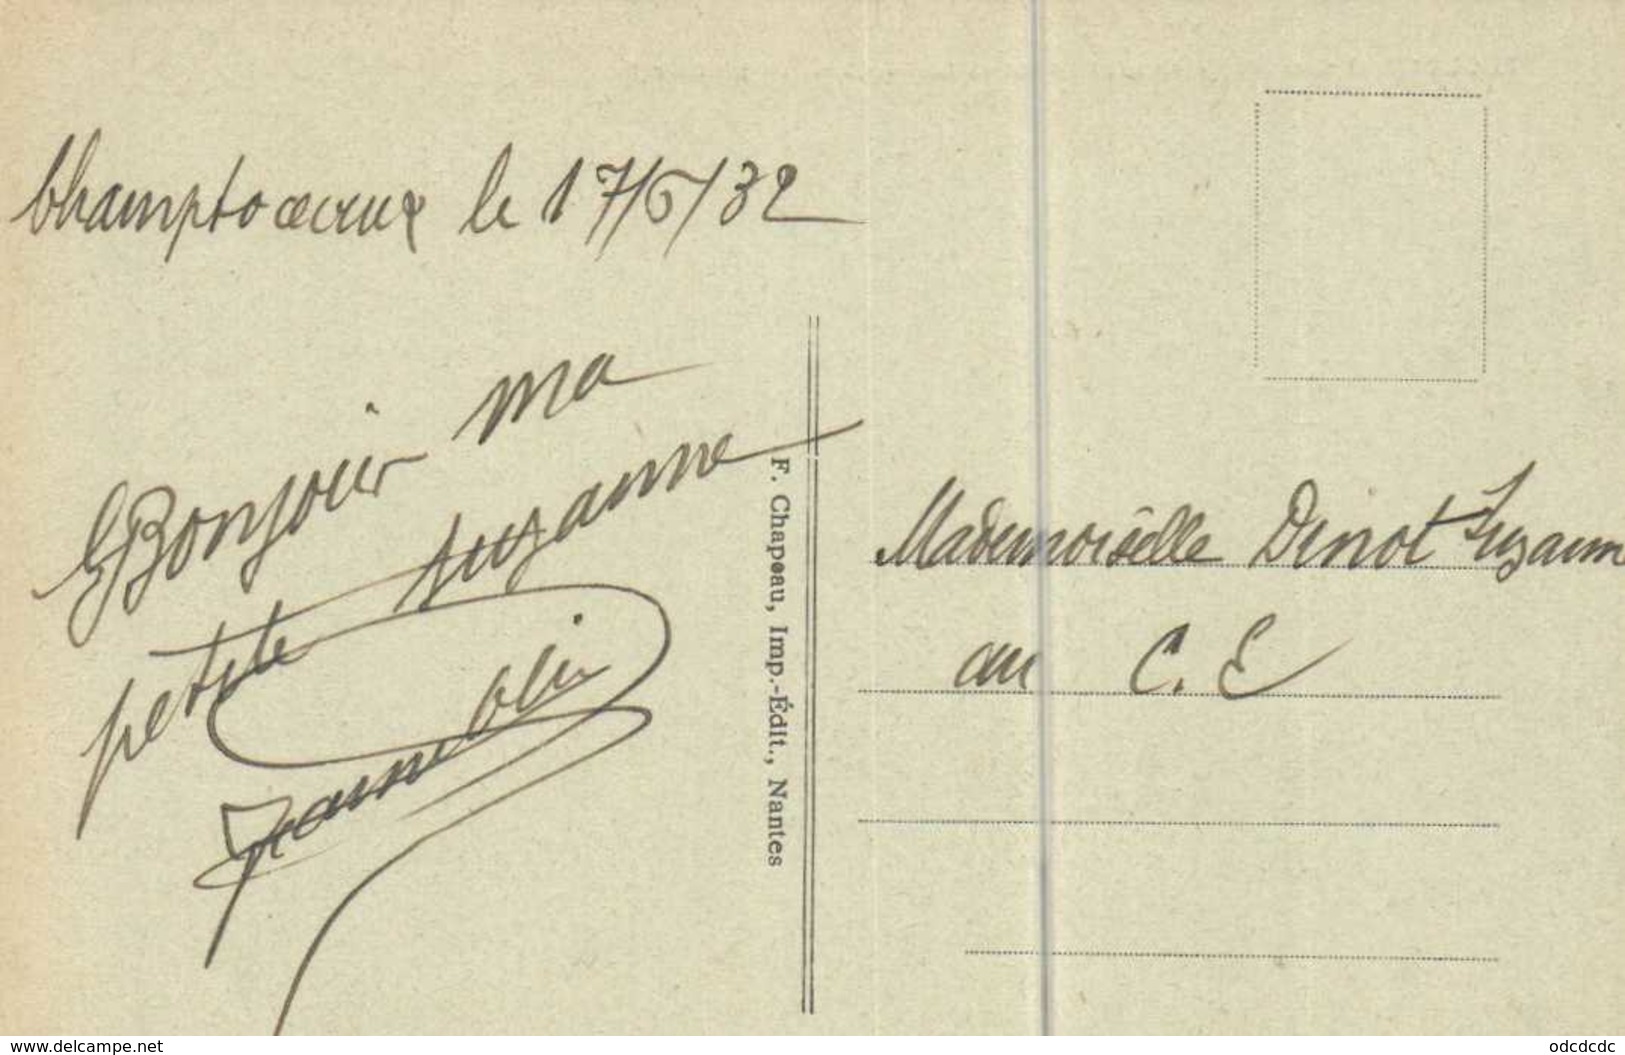 Champtoceaux le 17/6/32
Bonjour ma
petite Suzanne
F. Chapeau, Imp.-Édit., Nantes
Mademoiselle Dinot Suzanne
au C. E
www.delcampe.net
odcdcdc